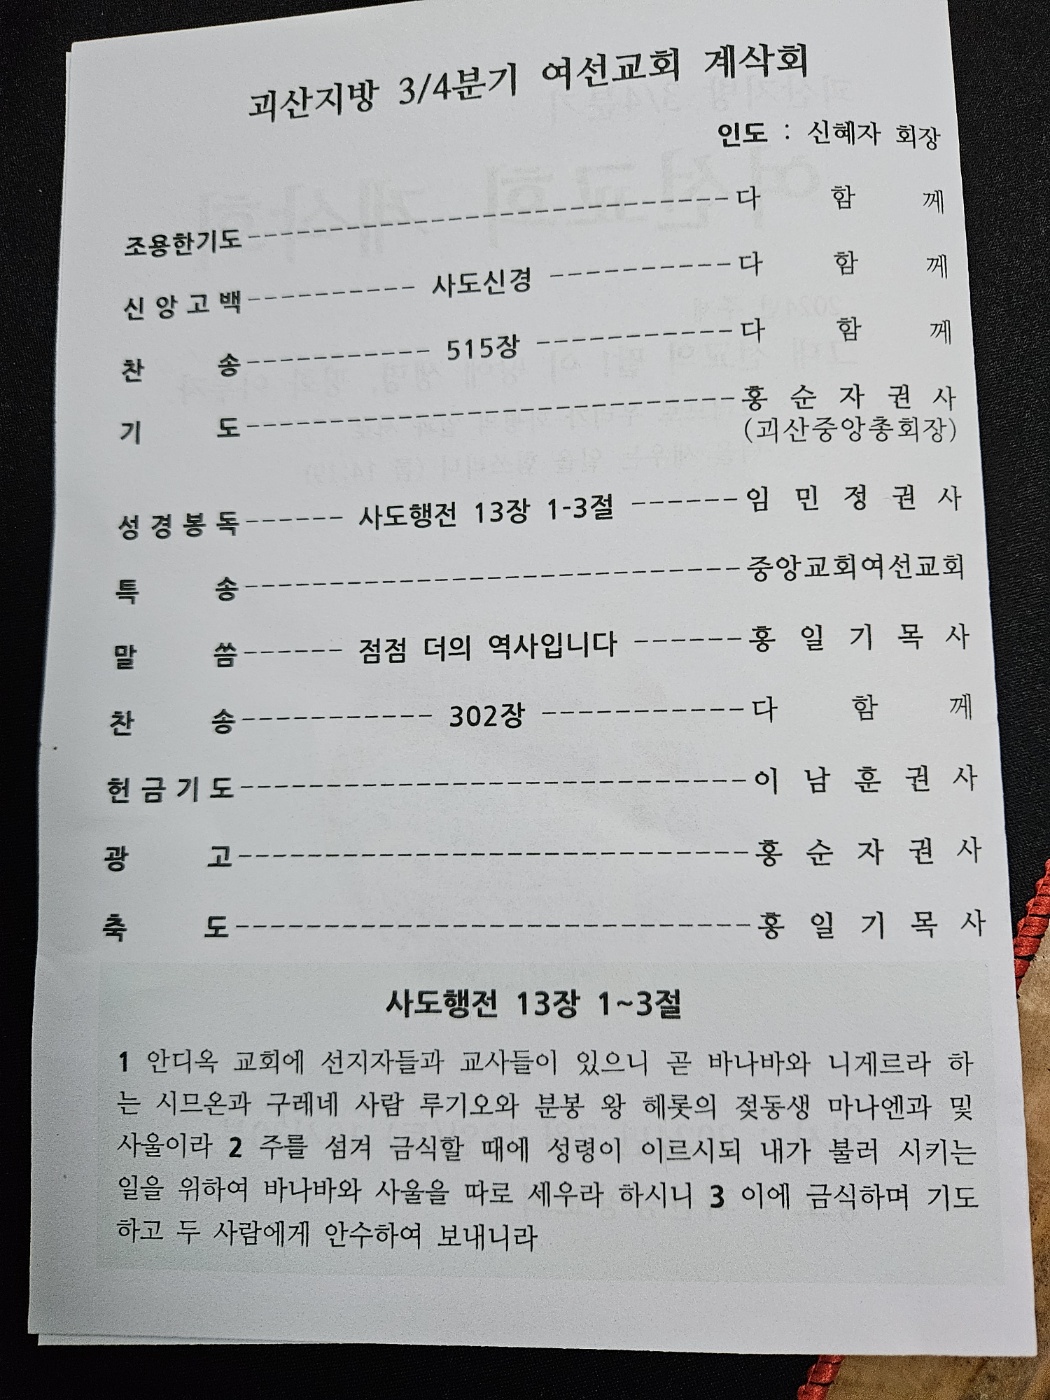 괴산지방 3/4분기 여선교회 계삭회
인도 : 신혜자 회장
조용한기도 다 함 께
신앙고백 사도신경 다 함 께
찬 송 515장 다 함 께
기 도 홍 순 자 권 사
(괴산중앙총회장)
성경봉독 사도행전 13장 1-3절 임 민 정 권 사
특 송 중앙교회여선교회
말 씀 점점 더의 역사입니다 홍 일 기 목 사
찬 송 302장 다 함 께
헌금기도 이 남 훈 권 사
광 고 홍 순 자 권 사
축 도 홍 일 기 목 사
사도행전 13장 1~3절
1 안디옥 교회에 선지자들과 교사들이 있으니 곧 바나바와 니게르라 하
는 시므온과 구레네 사람 루기오와 분봉 왕 헤롯의 젖동생 마나엔과 및
사울이라 2 주를 섬겨 금식할 때에 성령이 이르시되 내가 불러 시키는
일을 위하여 바나바와 사울을 따로 세우라 하시니 3 이에 금식하며 기도
하고 두 사람에게 안수하여 보내니라